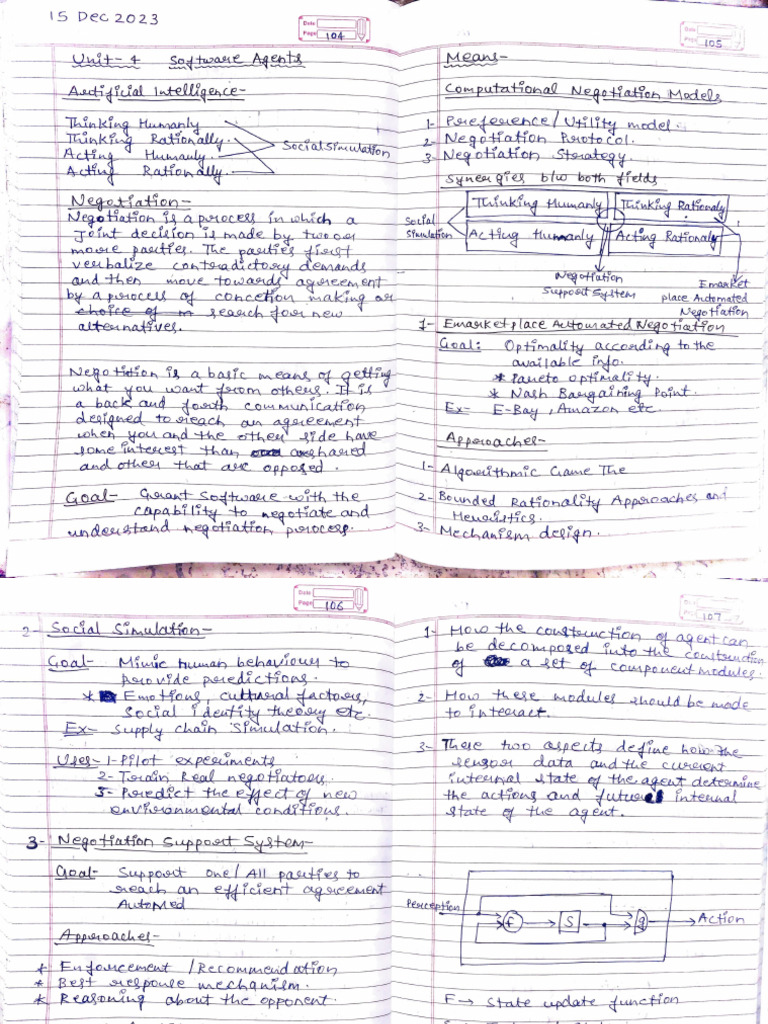 15 Dec 2023
Date
Page 104
Unit-4 Software Agents
Artificial Intelligence-
Thinking Humanly
Thinking Rationally.
Acting Humanly.
Acting Rationally.
Social Simulation
Negotiation-
Negotiation is a process in which a
joint decision is made by two or
more parties. The parties first
verbalize contradictory demands
and then move towards agreement
by a process of concetion making or
choice of m search for new
alternatives.
Negotiation is a basic means of getting
what you want from others. It is
a back and fourth communication
designed to reach an agreement
when you and the other side have
some interest than are shared
and other that are opposed.
Goal- Grant Software with the
capability to negotiate and
understand negotiation process.
Date
Page 105
Means-
Computational Negotiation Models
1- Preference/Utility model.
2- Negotiation Protocol.
3- Negotiation Strategy.
Synergies b/w both fields
Thinking Humanly
Thinking Rationaly
Social
Simulation
Acting Humanly
Acting Rationaly
Negotiation
Support System
Emarket
place Automated
Negotiation
1- Emarketplace Automated Negotiation
Goal: Optimality according to the
available info.
* Pareto optimality.
* Nash Bargaining Point.
Ex- E-Bay, Amazon etc.
Approaches-
1- Algorithmic Game The
2- Bounded Rationality Approaches and
Heuristics.
3- Mechanism design.
Date
Page 106
2- Social Simulation-
Goal- Mimic human behaviour to
provide predictions.
* Emotions, cultural factors,
social identity theory etc.
Ex- Supply chain simulation.
Uses- 1- Pilot experiments
2- Train Real negotiators.
3- Predict the effect of new
environmental conditions.
3- Negotiation Support System-
Goal- Support one/All parties to
reach an efficient agreement
Approaches-
* Enforcement /Recommendation
* Best response mechanism.
* Reasoning about the opponent.
Date
Page 107
1- How the construction of agent can
be decomposed into the construction
of a set of component modules.
2- How these modules should be made
to interact.
3- These two aspects define how the
sensor data and the current
internal state of the agent determine
the actions and future internal
state of the agent.
Perception
f
S
g
Action
F → State update function